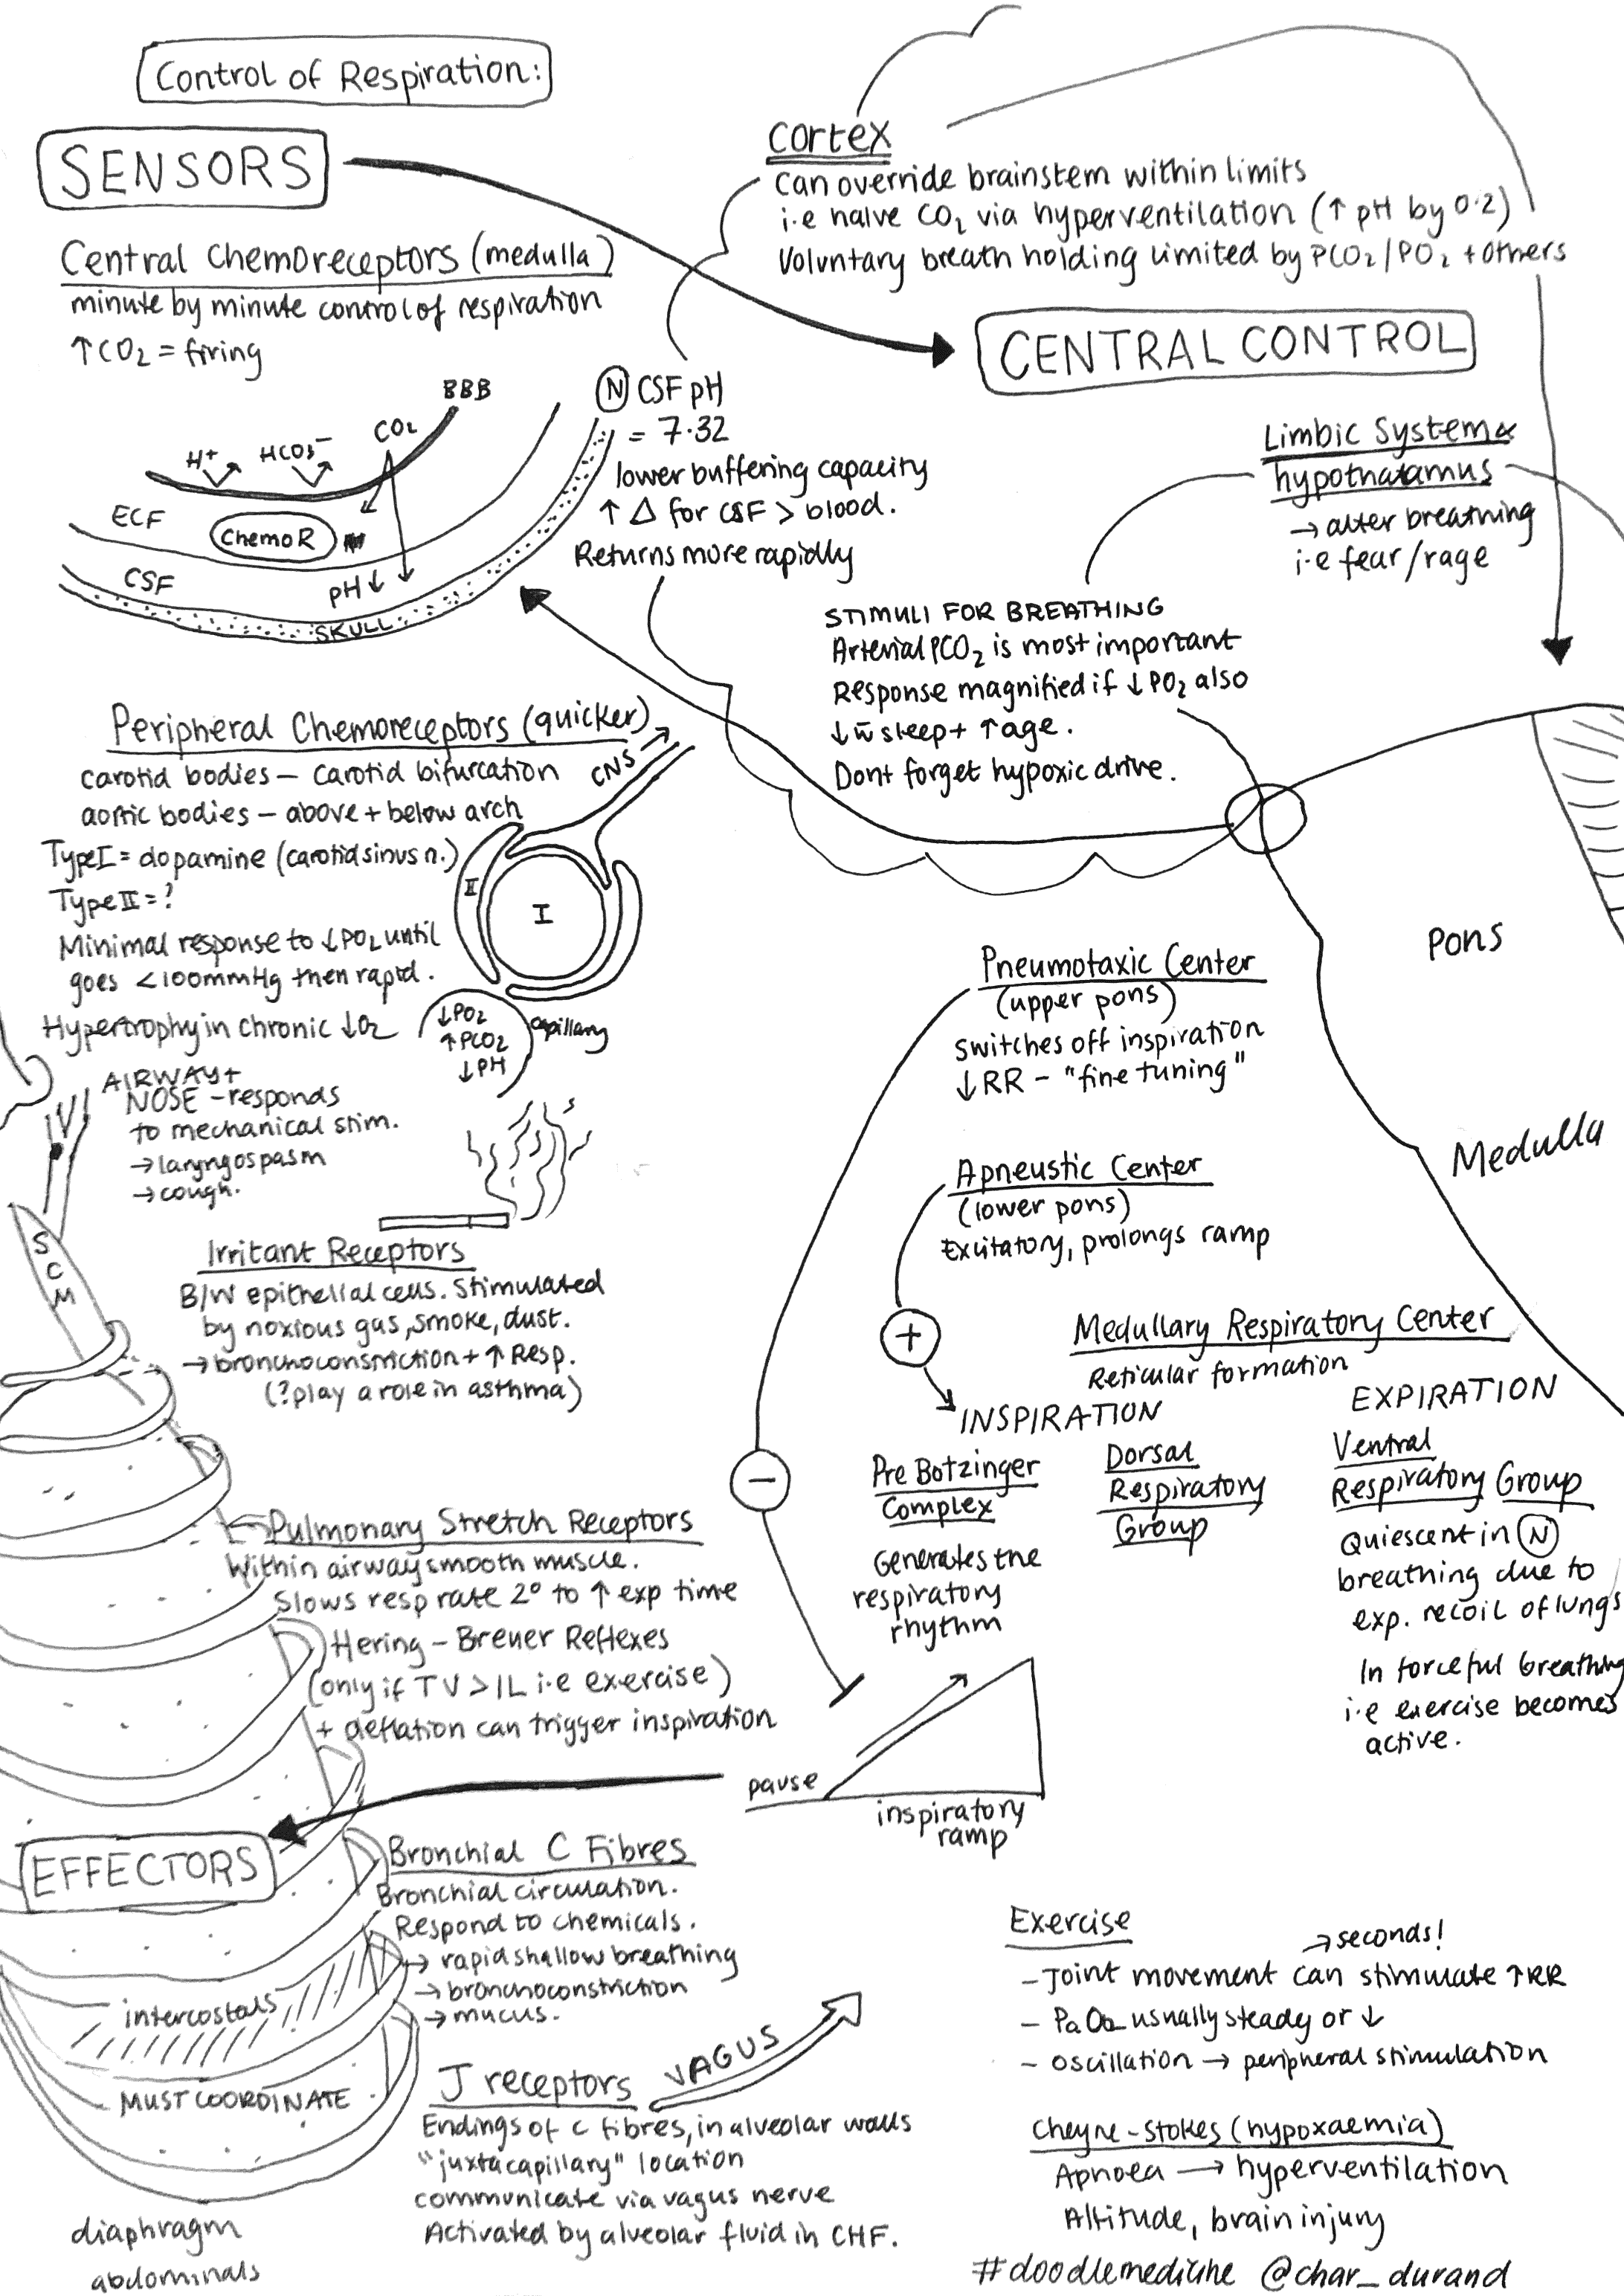 Control of Respiration:
SENSORS
Central Chemoreceptors (medulla)
minute by minute control of respiration
↑CO₂ = firing
BBB
H⁺
HCO₃⁻
CO₂
ECF
ChemoR
CSF
pH↓
SKULL
Ⓝ CSF pH
= 7.32
lower buffering capacity
↑ Δ for CSF > blood.
Returns more rapidly
Peripheral Chemoreceptors (quicker)
carotid bodies – carotid bifurcation
aortic bodies – above + below arch
Type I = dopamine (carotid sinus n.)
Type II = ?
Minimal response to ↓PO₂ until
goes <100mmHg then rapid.
Hypertrophy in chronic ↓O₂
CNS →
II
I
↓PO₂
↑PCO₂
↓PH
capillary
AIRWAY +
NOSE – responds
to mechanical stim.
→ laryngospasm
→ cough.
SCM
Irritant Receptors
B/W epithelial cells. Stimulated
by noxious gas, smoke, dust.
→ bronchoconstriction + ↑ Resp.
(? play a role in asthma)
Pulmonary Stretch Receptors
Within airway smooth muscle.
Slows resp rate 2° to ↑ exp time
Hering – Breuer Reflexes
(only if TV > 1L i.e exercise)
+ deflation can trigger inspiration
EFFECTORS
Bronchial C Fibres
Bronchial circulation.
Respond to chemicals.
→ rapid shallow breathing
→ bronchoconstriction
→ mucus.
intercostals
MUST COORDINATE
J receptors
VAGUS
Endings of c fibres, in alveolar walls
"juxtacapillary" location
communicate via vagus nerve
Activated by alveolar fluid in CHF.
diaphragm
abdominals
cortex
can override brainstem within limits
i.e CO₂ via hyperventilation (↑ pH by 0.2)
Voluntary breath holding limited by PCO₂/PO₂ + others
CENTRAL CONTROL
Limbic System &
hypothalamus
→ alter breathing
i.e fear/rage
STIMULI FOR BREATHING
Arterial PCO₂ is most important
Response magnified if ↓PO₂ also
↓ w̄ sleep + ↑age.
Dont forget hypoxic drive.
Pons
Medulla
Pneumotaxic Center
(upper pons)
Switches off inspiration
↓RR – "fine tuning"
Apneustic Center
(lower pons)
Excitatory, prolongs ramp
+
Medullary Respiratory Center
Reticular formation
INSPIRATION
Pre Botzinger
Complex
Generates the
respiratory
rhythm
Dorsal
Respiratory
Group
EXPIRATION
Ventral
Respiratory Group
Quiescent in Ⓝ
breathing due to
exp. recoil of lungs
In forceful breathing
i.e exercise becomes
active.
−
pause
inspiratory
ramp
Exercise
→ seconds!
– Joint movement can stimulate ↑RR
– PaO₂ usually steady or ↓
– oscillation → peripheral stimulation
Cheyne-Stokes (hypoxaemia)
Apnoea → hyperventilation
Altitude, brain injury
#doodlemedicine @char_durand